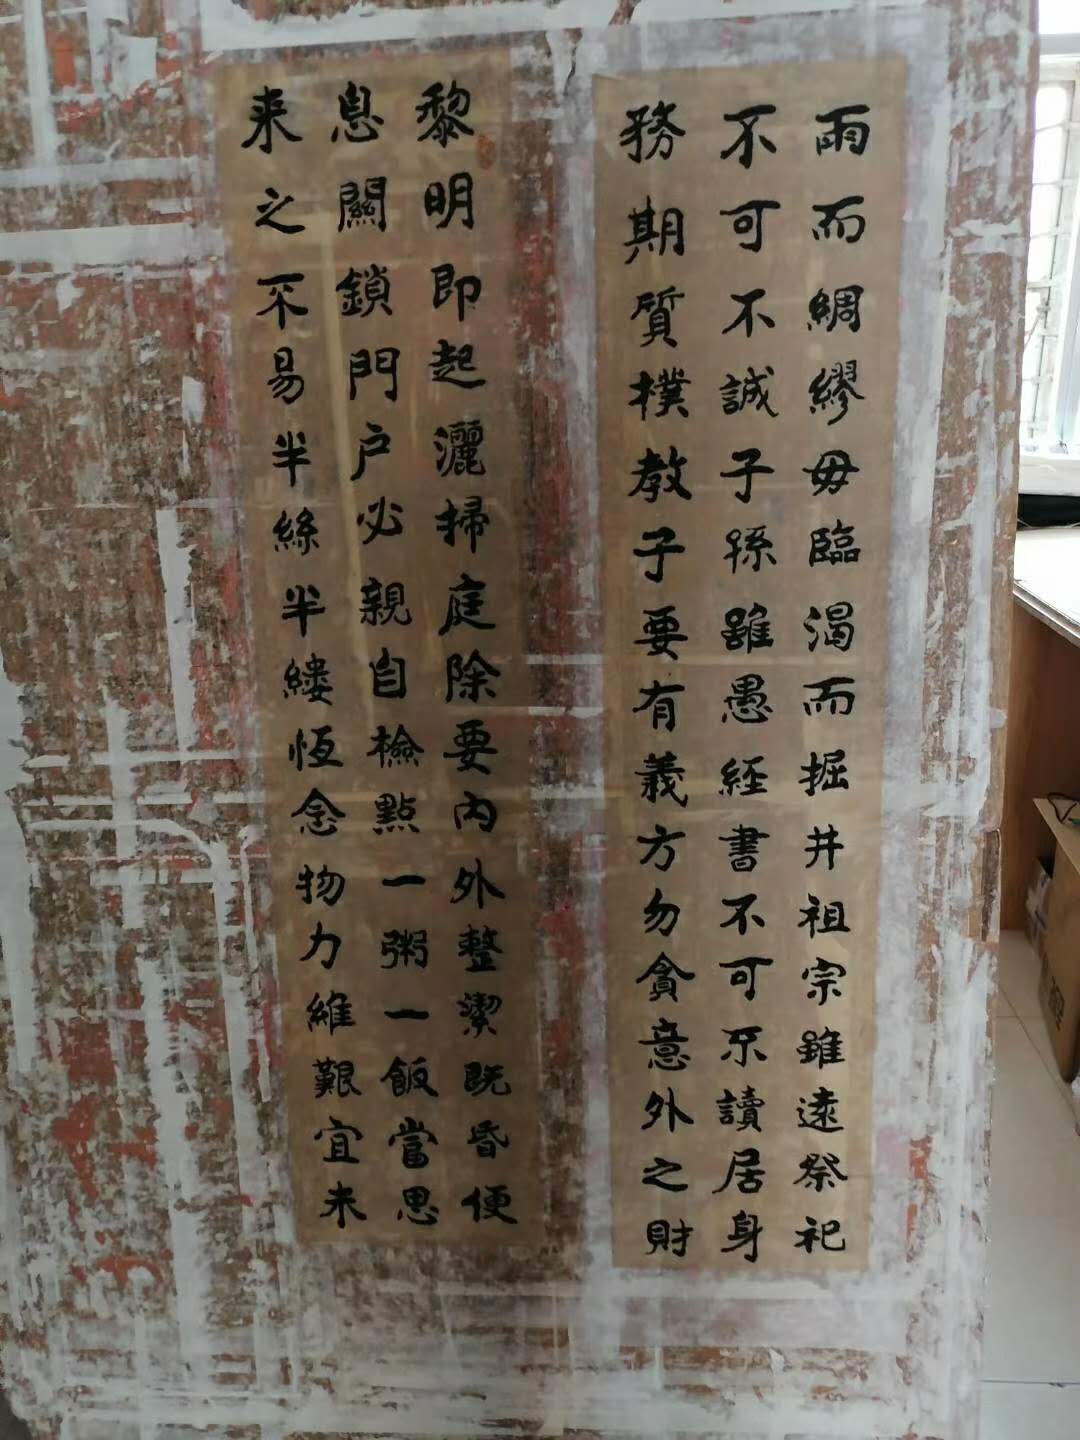 黎明即起灑掃庭除要内外整潔既昏便
息關鎖門户必親自檢點一粥一飯當思
来之不易半絲半縷恆念物力維艱宜未
雨而綢繆毋臨渴而掘井祖宗雖遠祭祀
不可不誠子孫雖愚經書不可不讀居身
務期質樸教子要有義方勿貪意外之財